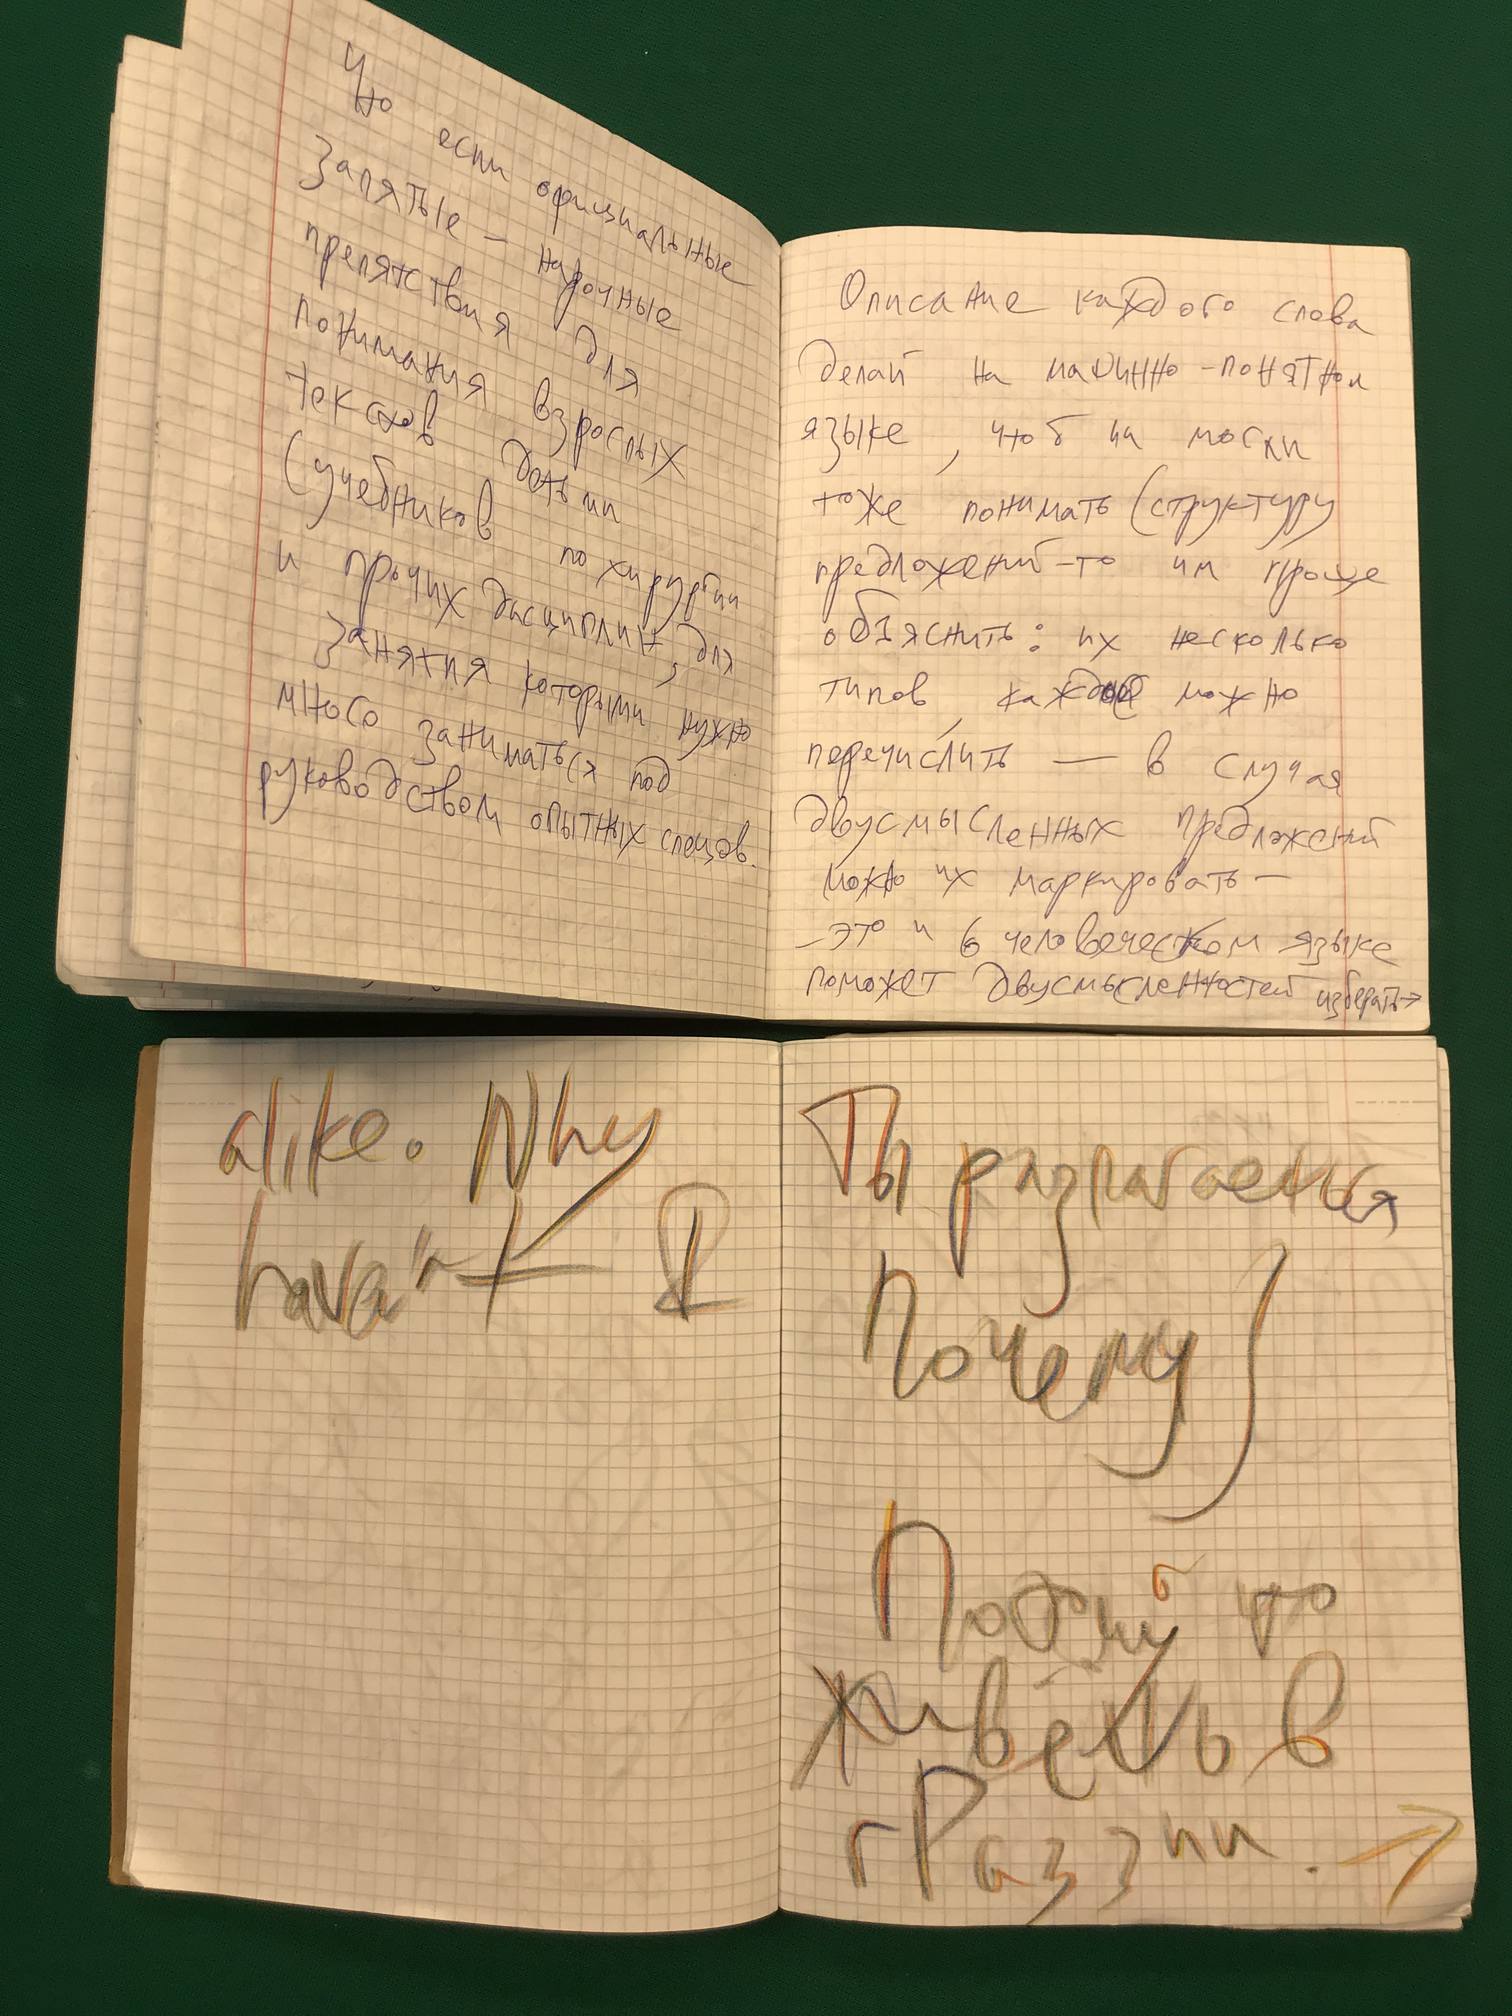 Что если официальные
запятые - нарочные
препятствия для
понимания взрослых
текстов детьми
(учебников по хирургии
и прочих дисциплин, для
занятия которыми нужно
много заниматься под
руководством опытных спецов.
Описание каждого слова
делай на машинно-понятном
языке, чтоб ии могли
тоже понимать (структуру
предложений-то им проще
объяснить: их несколько
типов, каждый можно
перечислить — в случая
двусмысленных предложений
можно их маркировать -
- это и в человеческом языке
поможет двусмысленностей избегать→
alike. Why
haven't I
Ты разлагаешься
Почему
Потому что
живёшь в
гРаззии. →